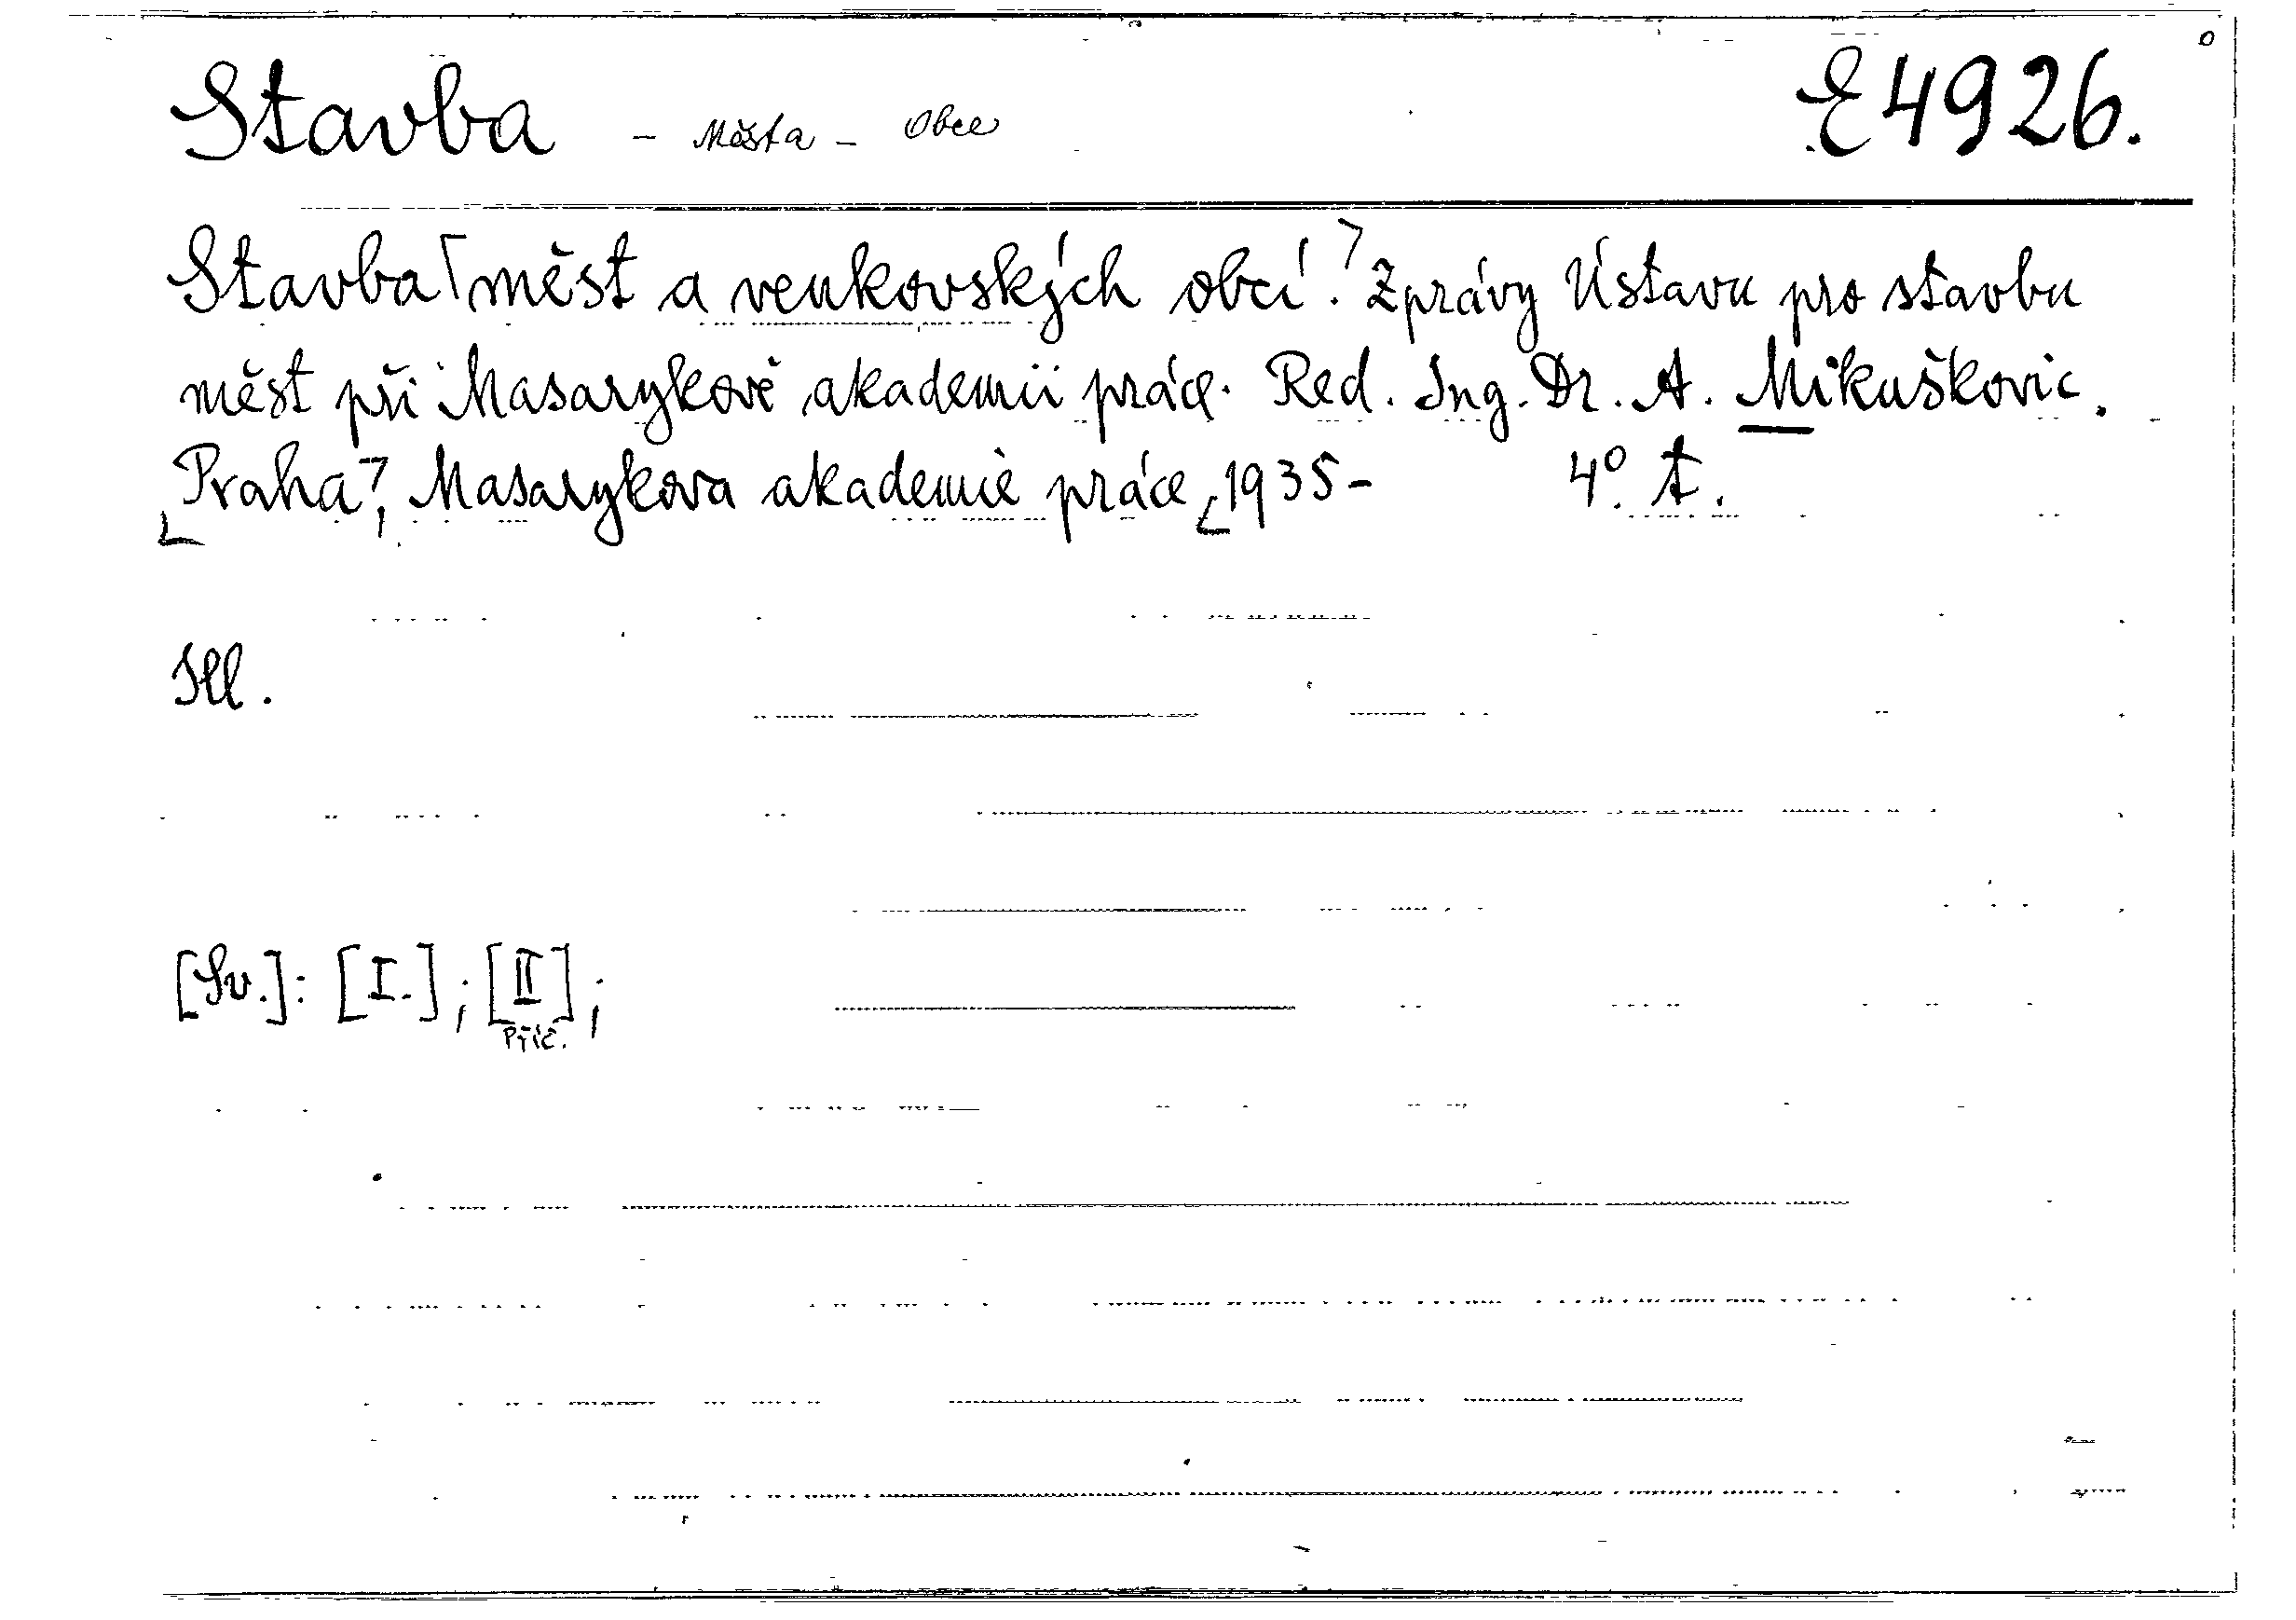 Stavba - Města - Obce E 4926.
Stavba měst a venkovských obcí. Zprávy Ústavu pro stavbu
měst při Masarykově akademii práce. Red. Ing. Dr. A. Mikuškovic.
Praha, Masarykova akademie práce 1935- 4°. t.
Ill.
[Sv.]: [I.]; [II];
Příč.